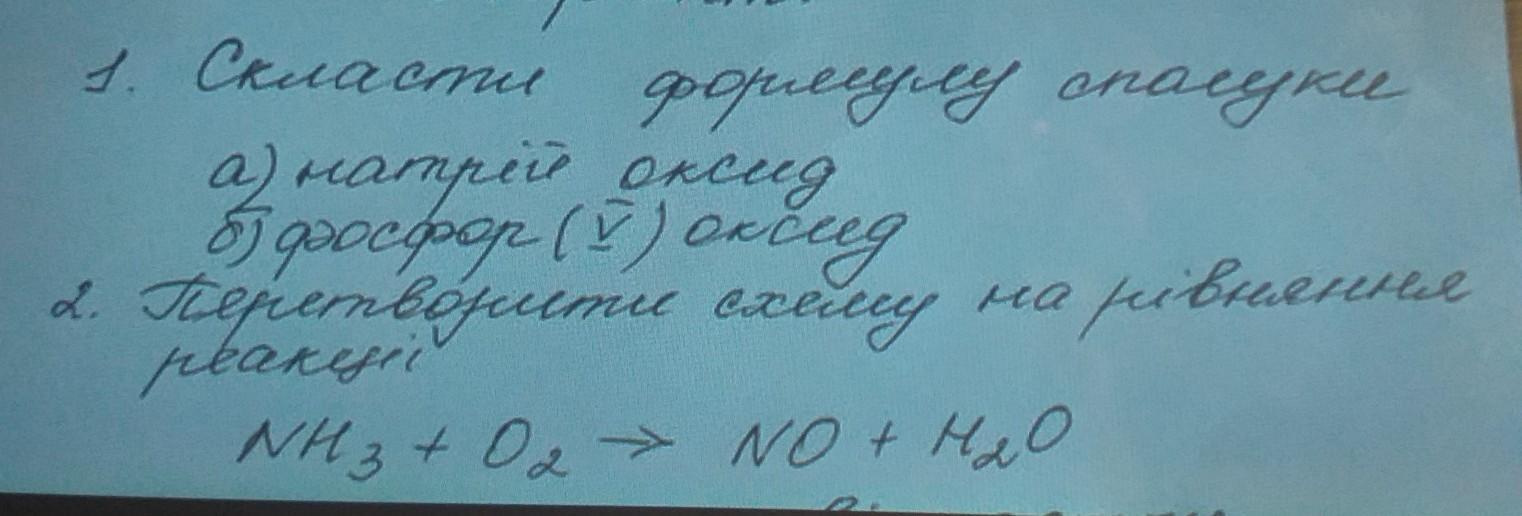 1. Скласти формулу сполуки
а) натрій оксид
б) фосфор (V) оксид
2. Перетворити схему на рівняння
реакції
NH₃ + O₂ → NO + H₂O